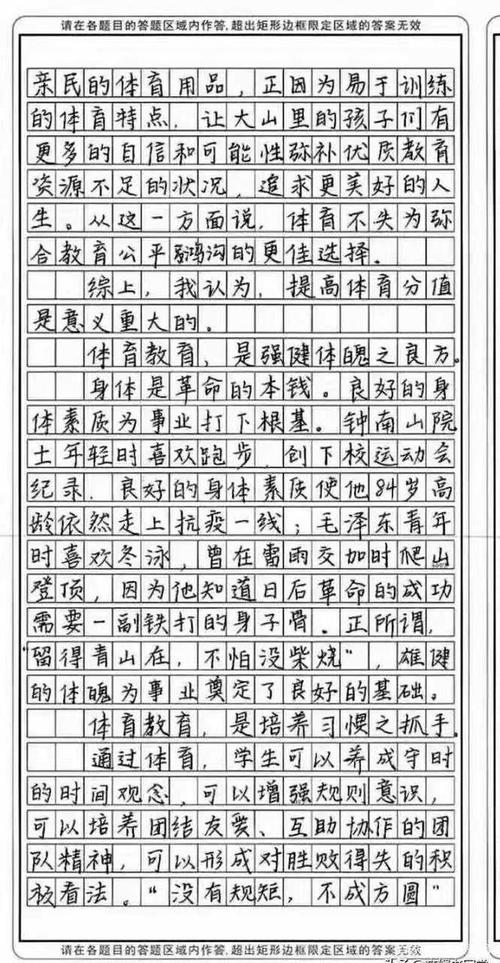 请在各题目的答题区域内作答,超出矩形边框限定区域的答案无效
亲民的体育用品，正因为易于训练
的体育特点，让大山里的孩子们有
更多的自信和可能性弥补优质教育
资源不足的状况，追求更美好的人
生。从这一方面说，体育不失为弥
合教育公平鸿沟的更佳选择。
综上，我认为，提高体育分值
是意义重大的。
体育教育，是强健体魄之良方。
身体是革命的本钱。良好的身
体素质为事业打下根基。钟南山院
士年轻时喜欢跑步，创下校运动会
纪录，良好的身体素质使他84岁高
龄依然走上抗疫一线；毛泽东青年
时喜欢冬泳，曾在雷雨交加时爬山
登顶，因为他知道日后革命的成功
需要一副铁打的身子骨。正所谓，
“留得青山在，不怕没柴烧”，雄健
的体魄为事业奠定了良好的基础。
体育教育，是培养习惯之抓手。
通过体育，学生可以养成守时
的时间观念，可以增强规则意识，
可以培养团结友爱、互助协作的团
队精神，可以形成对胜败得失的积
极看法。“没有规矩，不成方圆”
请在各题目的答题区域内作答,超出矩形边框限定区域的答案无效